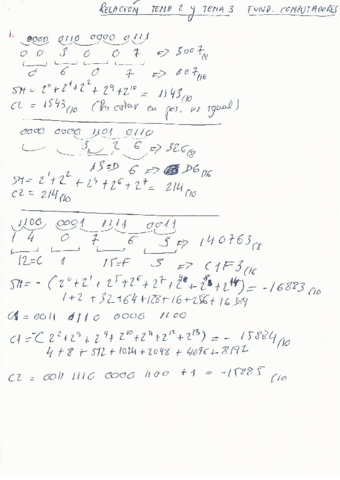 RELACIÓN TEMA 2 y TEMA 3 FUND. COMPUTADORES
1.
0000 0110 0000 0111
0 0 3 0 0 7 => 3007/8
0 6 0 7 => 607/16
SM = 2⁰+2¹+2²+2⁹+2¹⁰ = 1143/10
C2 = 1543/10 ( en pos. es igual)
0000 0000 1101 0110
3 2 6 => 326/8
13=D 6 => D6/16
SM = 2¹+2²+2⁴+2⁶+2⁷ = 214/10
C2 = 214/10
1100 0001 1111 0011
1 4 0 7 6 3 => 140763/8
12=C 1 15=F 3 => C1F3/16
SM = -(2⁰+2¹+2⁴+2⁵+2⁶+2⁷+2⁸+2¹⁴) = -16883/10
1+2+32+64+128+16+256+16384
C1 = 0011 1110 0000 1100
C1 = -(2²+2³+2⁹+2¹⁰+2¹¹+2¹²+2¹³) = -15884/10
4+8+512+1024+2048+4096+8192
C2 = 0011 1110 0000 1100 +1 = -15885/10